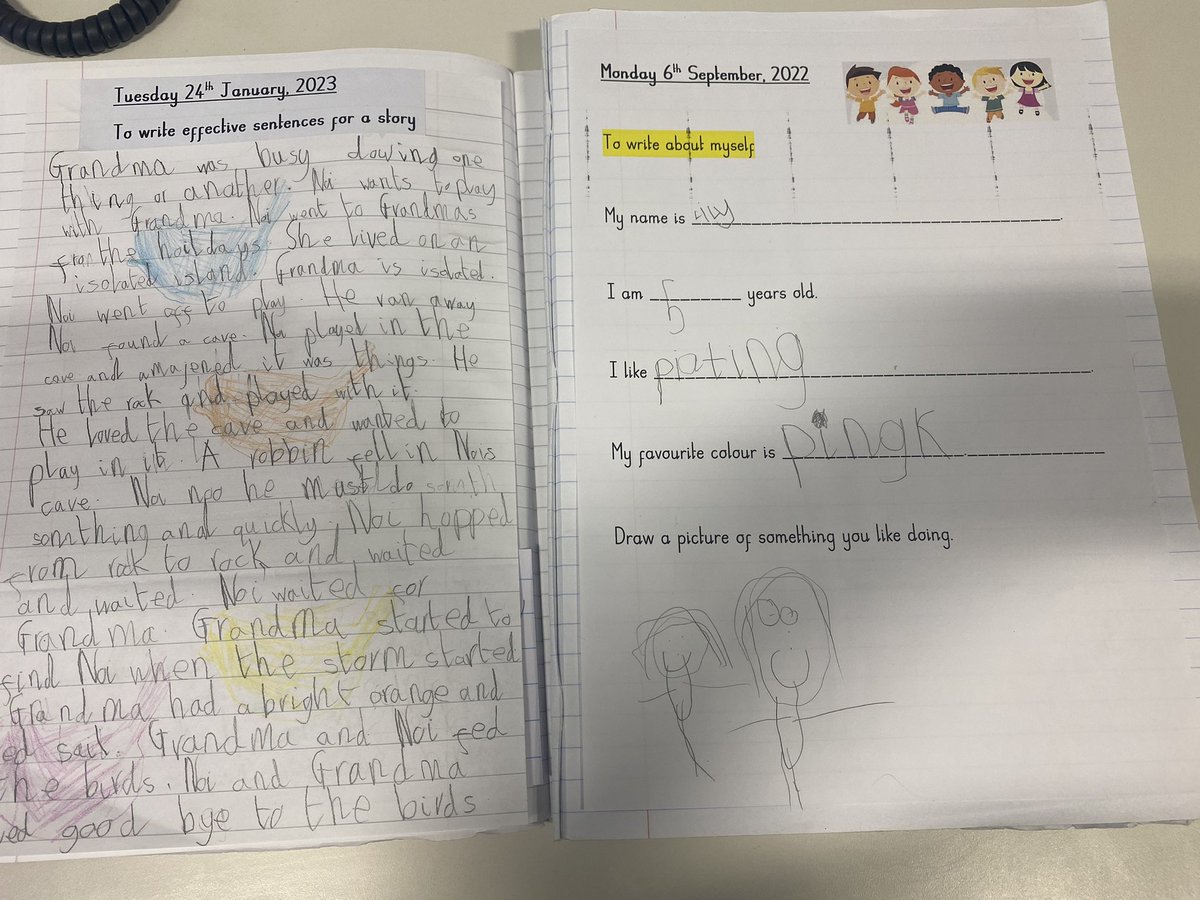 Tuesday 24th January, 2023
To write effective sentences for a story
Grandma was busy dowing one
thing or anather. Noi wants to play
with Grandma. Noi went to Grandmas
fran the hoildays. She lived on an
isolated island. Grandma is isolated.
Noi went off to play. He ran away
Noi found a cave. Noi played in the
cave and amajened it was things. He
saw the rock and played with it.
He loved the cave and wanted to
play in it. A robbin fell in Nois
cave. Noi npo he must do somth
somthing and quickly. Noi hopped
from rock to rock and waited
and waited. Noi waited for
Grandma. Grandma started to
find Noi when the storm started
Grandma had a bright orange and
ed . Grandma and Noi fed
he birds. Noi and Grandma
ed good bye to the birds.
Monday 6th September, 2022
To write about myself
My name is
I am 5 years old.
I like piating
My favourite colour is pingk
Draw a picture of something you like doing.